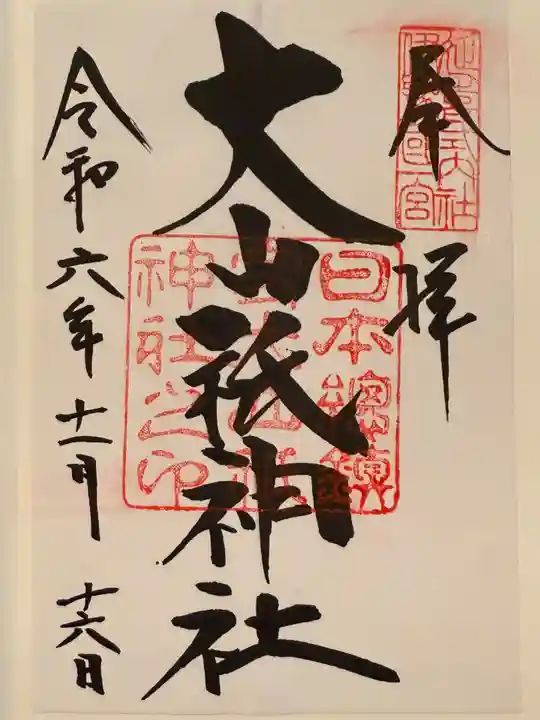 奉拝
延喜式大社
伊予国一宮
大山祇神社
日本総鎮守
大山祇
神社之印
令和六年十一月十六日